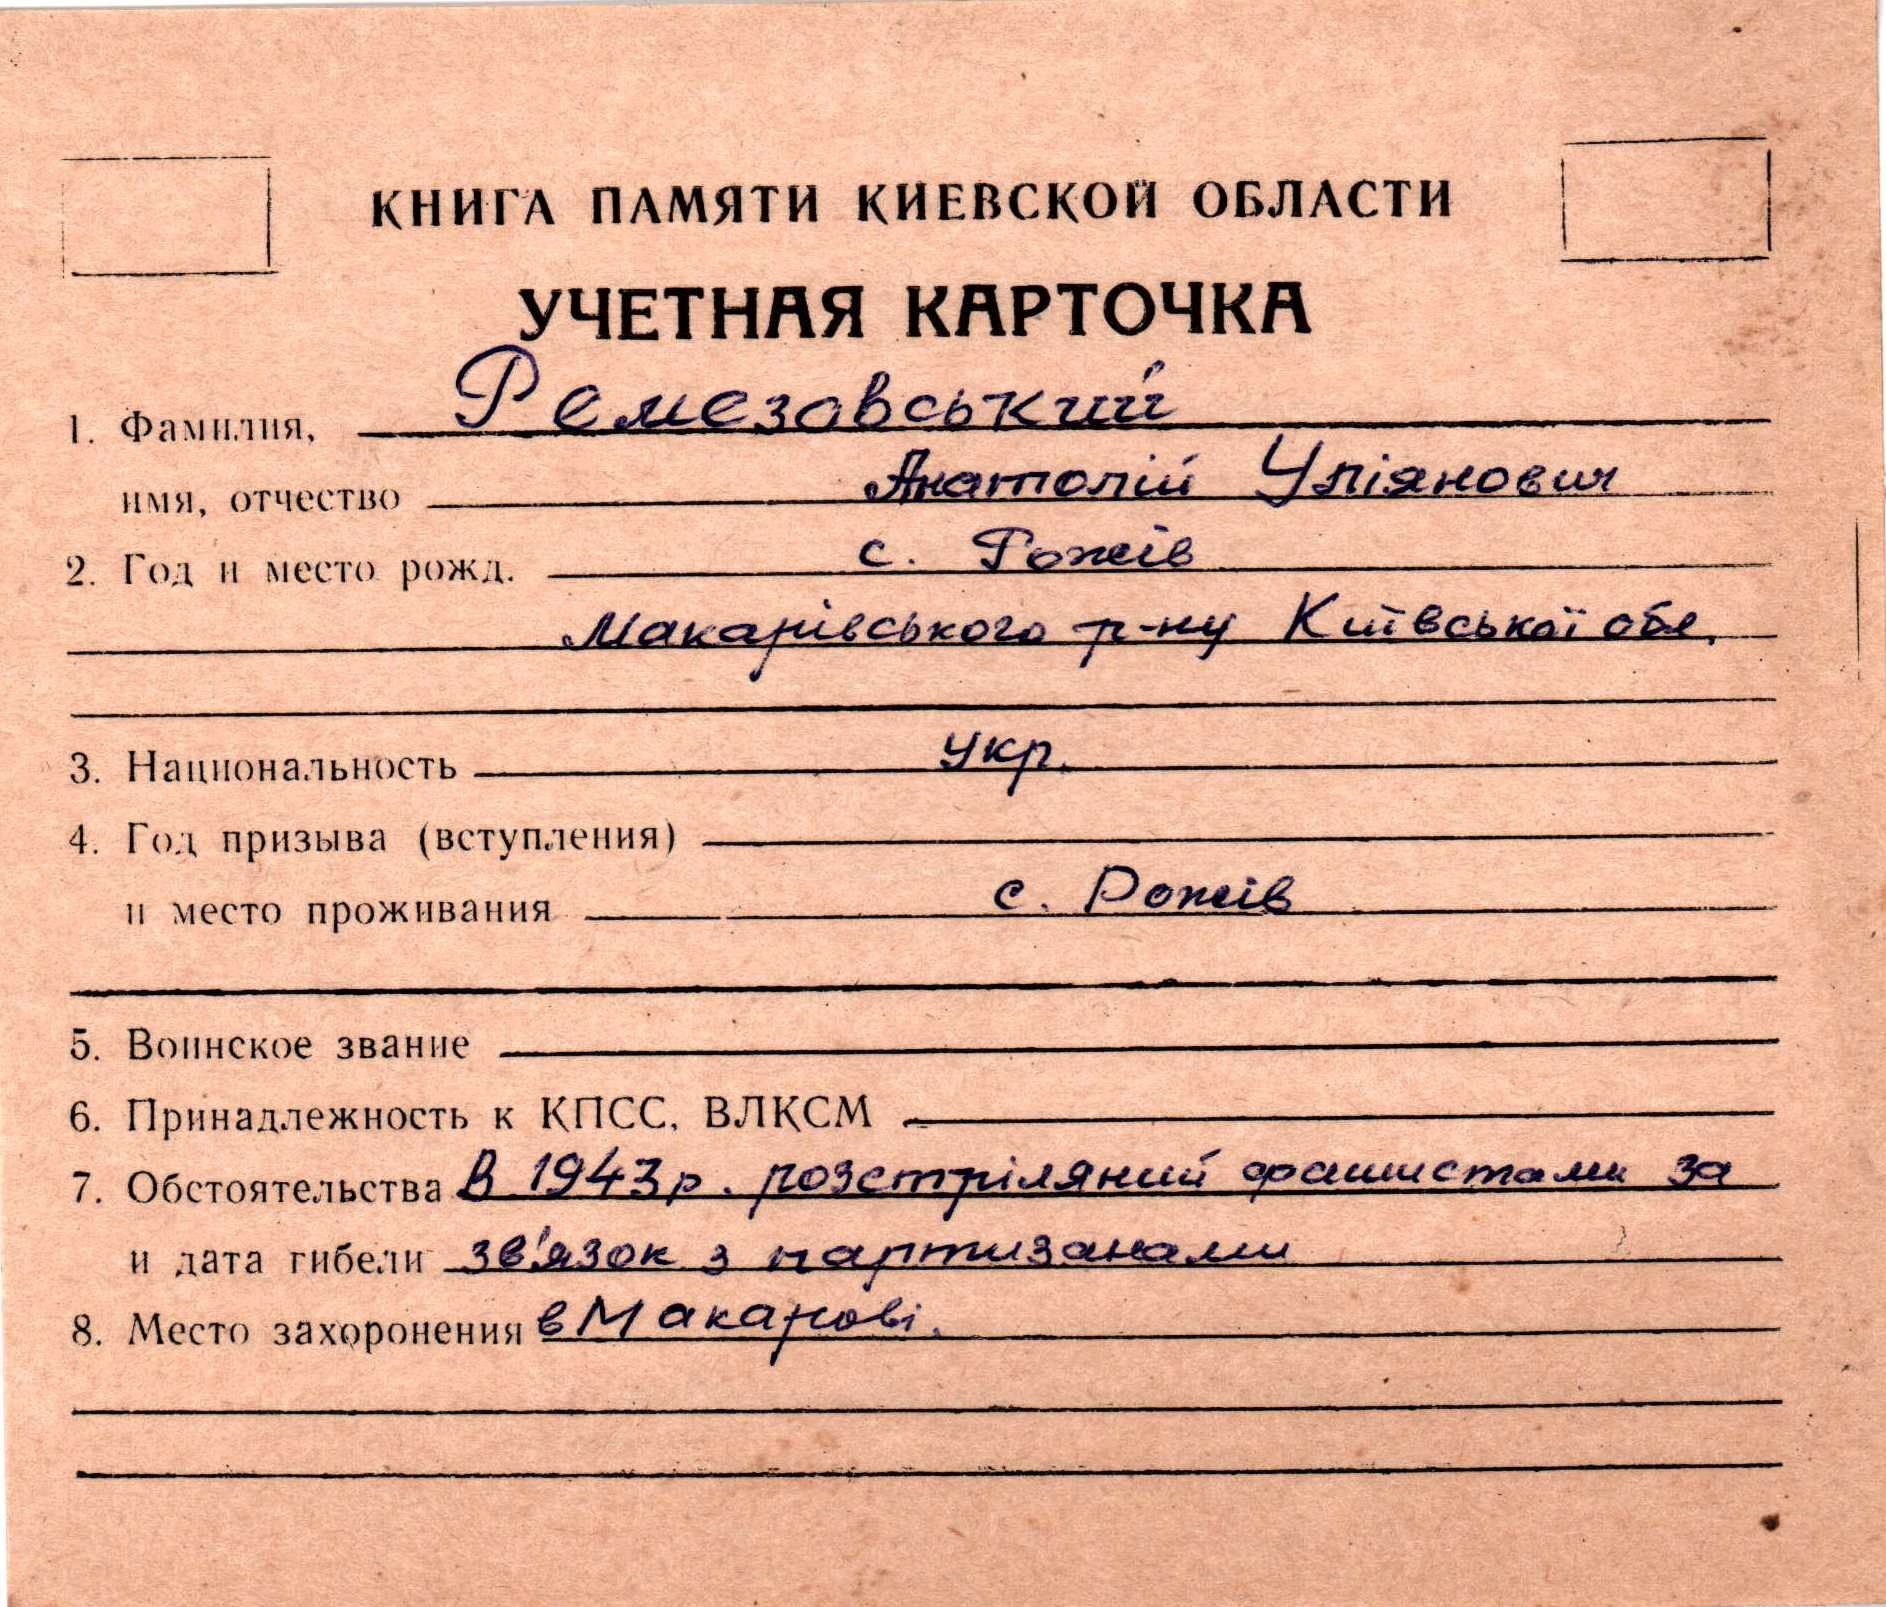 КНИГА ПАМЯТИ КИЕВСКОЙ ОБЛАСТИ
УЧЕТНАЯ КАРТОЧКА
1. Фамилия, Ремезовський
имя, отчество Анатолій Уліянович
2. Год и место рожд. с. Рожів
Макарівського р-ну Київської обл.
3. Национальность укр.
4. Год призыва (вступления)
и место проживания с. Рожів
5. Воинское звание
6. Принадлежность к КПСС, ВЛКСМ
7. Обстоятельства В 1943 р. розстріляний фашистами за
и дата гибели зв'язок з партизанами
8. Место захоронения в Макарові.